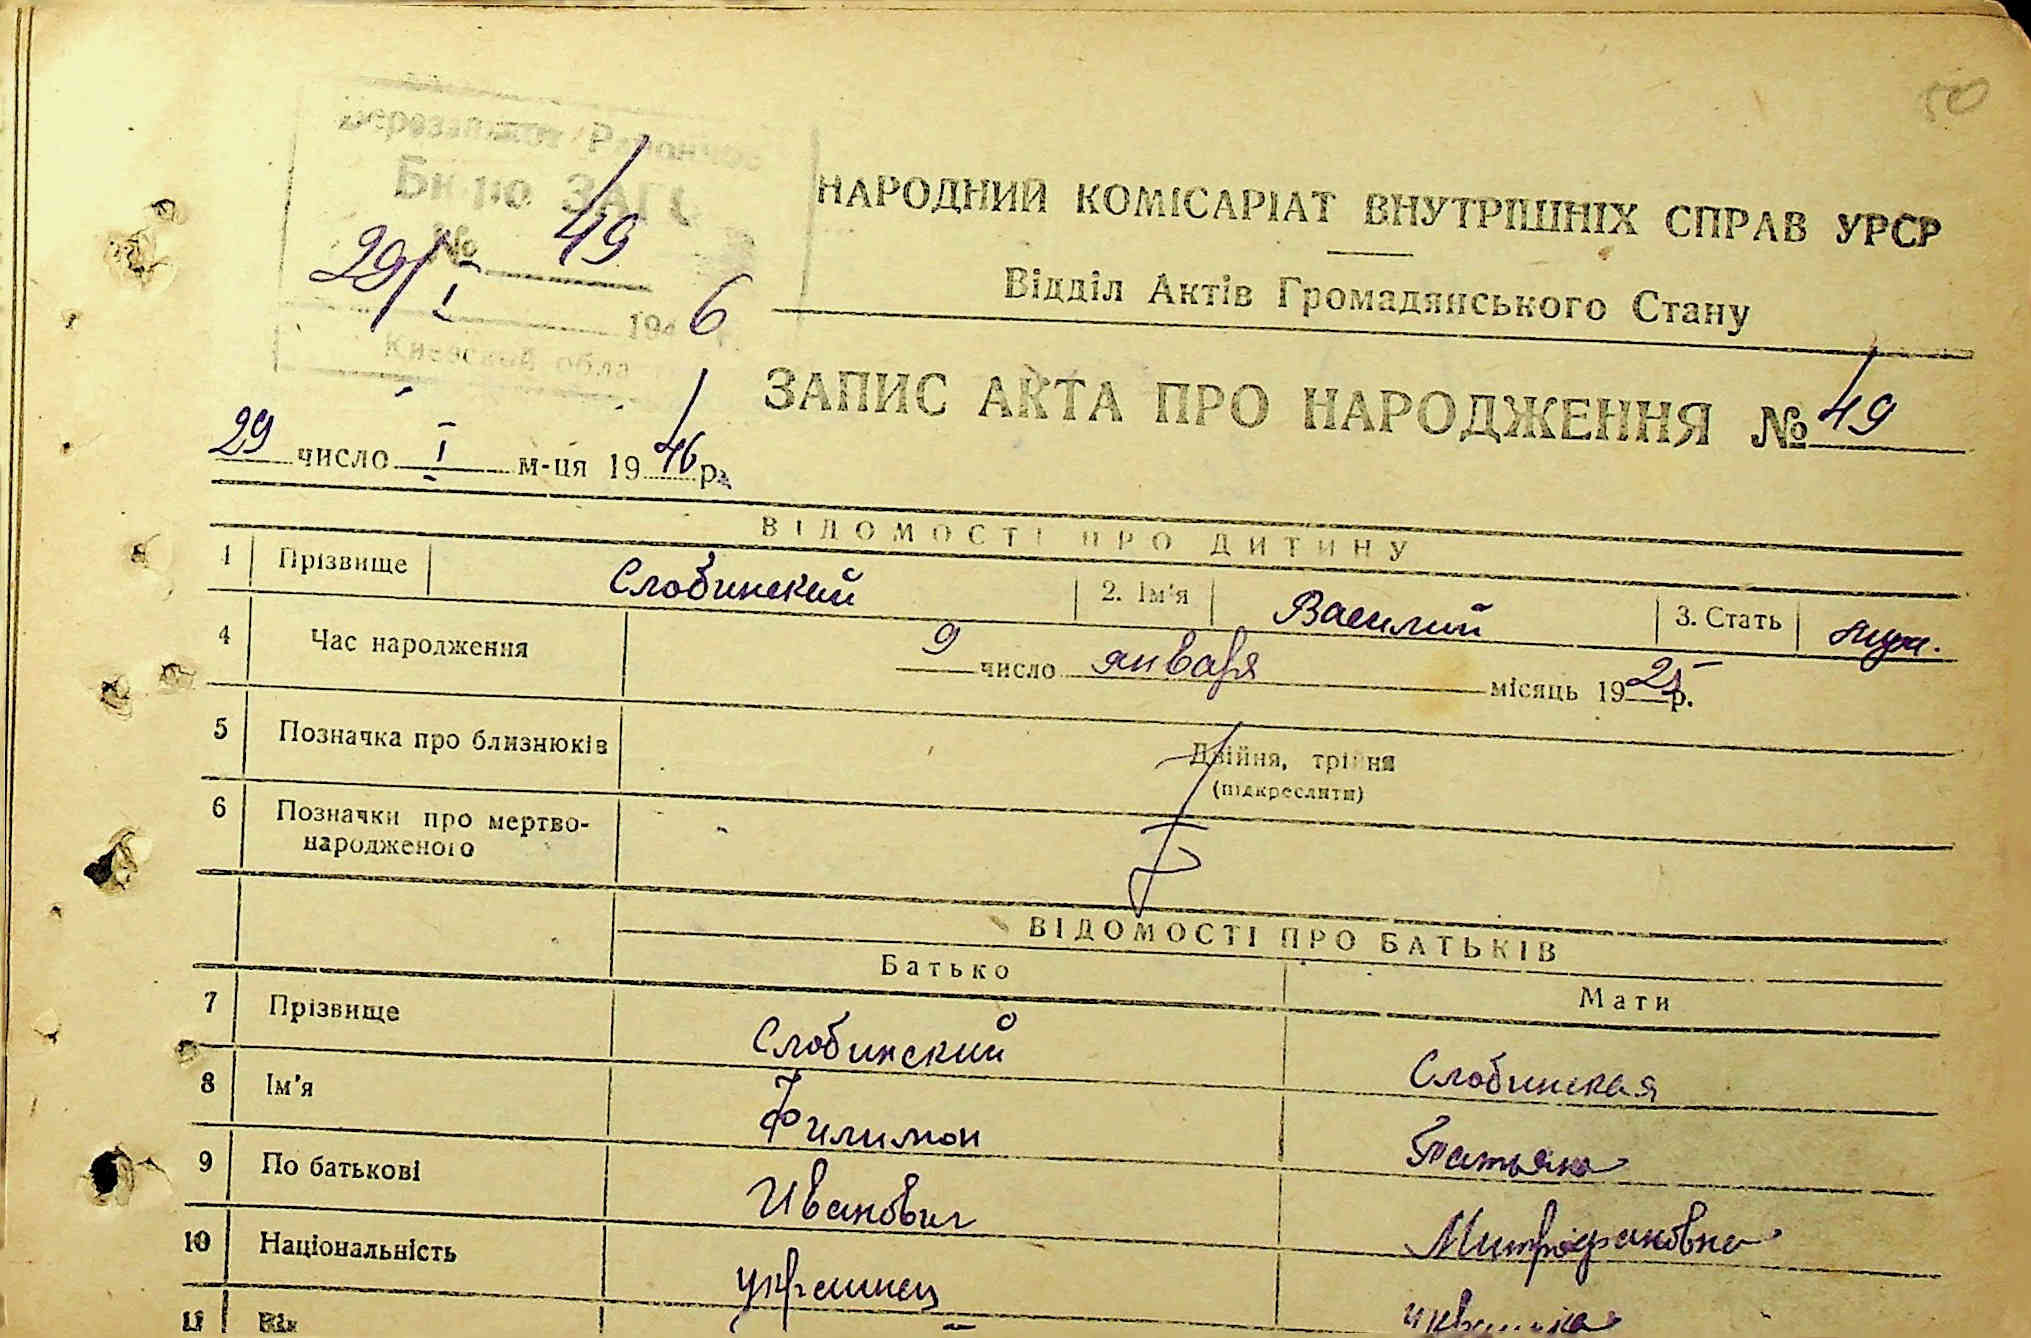 50
Бюро ЗАГС
№ 49
29/I 1946 г.
НАРОДНИЙ КОМІСАРІАТ ВНУТРІШНІХ СПРАВ УРСР
Відділ Актів Громадянського Стану
ЗАПИС АКТА ПРО НАРОДЖЕННЯ № 49
29 число I м-ця 1946 р.
ВІДОМОСТІ ПРО ДИТИНУ
1 Прізвище Слобинский 2. Ім'я Василий 3. Стать муж.
4 Час народження 9 число января місяць 1925 р.
5 Позначка про близнюків Двійня, трійня
(підкреслити)
6 Позначки про мертво-
народженого
ВІДОМОСТІ ПРО БАТЬКІВ
Батько Мати
7 Прізвище Слобинский Слобинская
8 Ім'я Филимон Татьяна
9 По батькові Иванович Митрофановна
10 Національність украинец
11 Вік